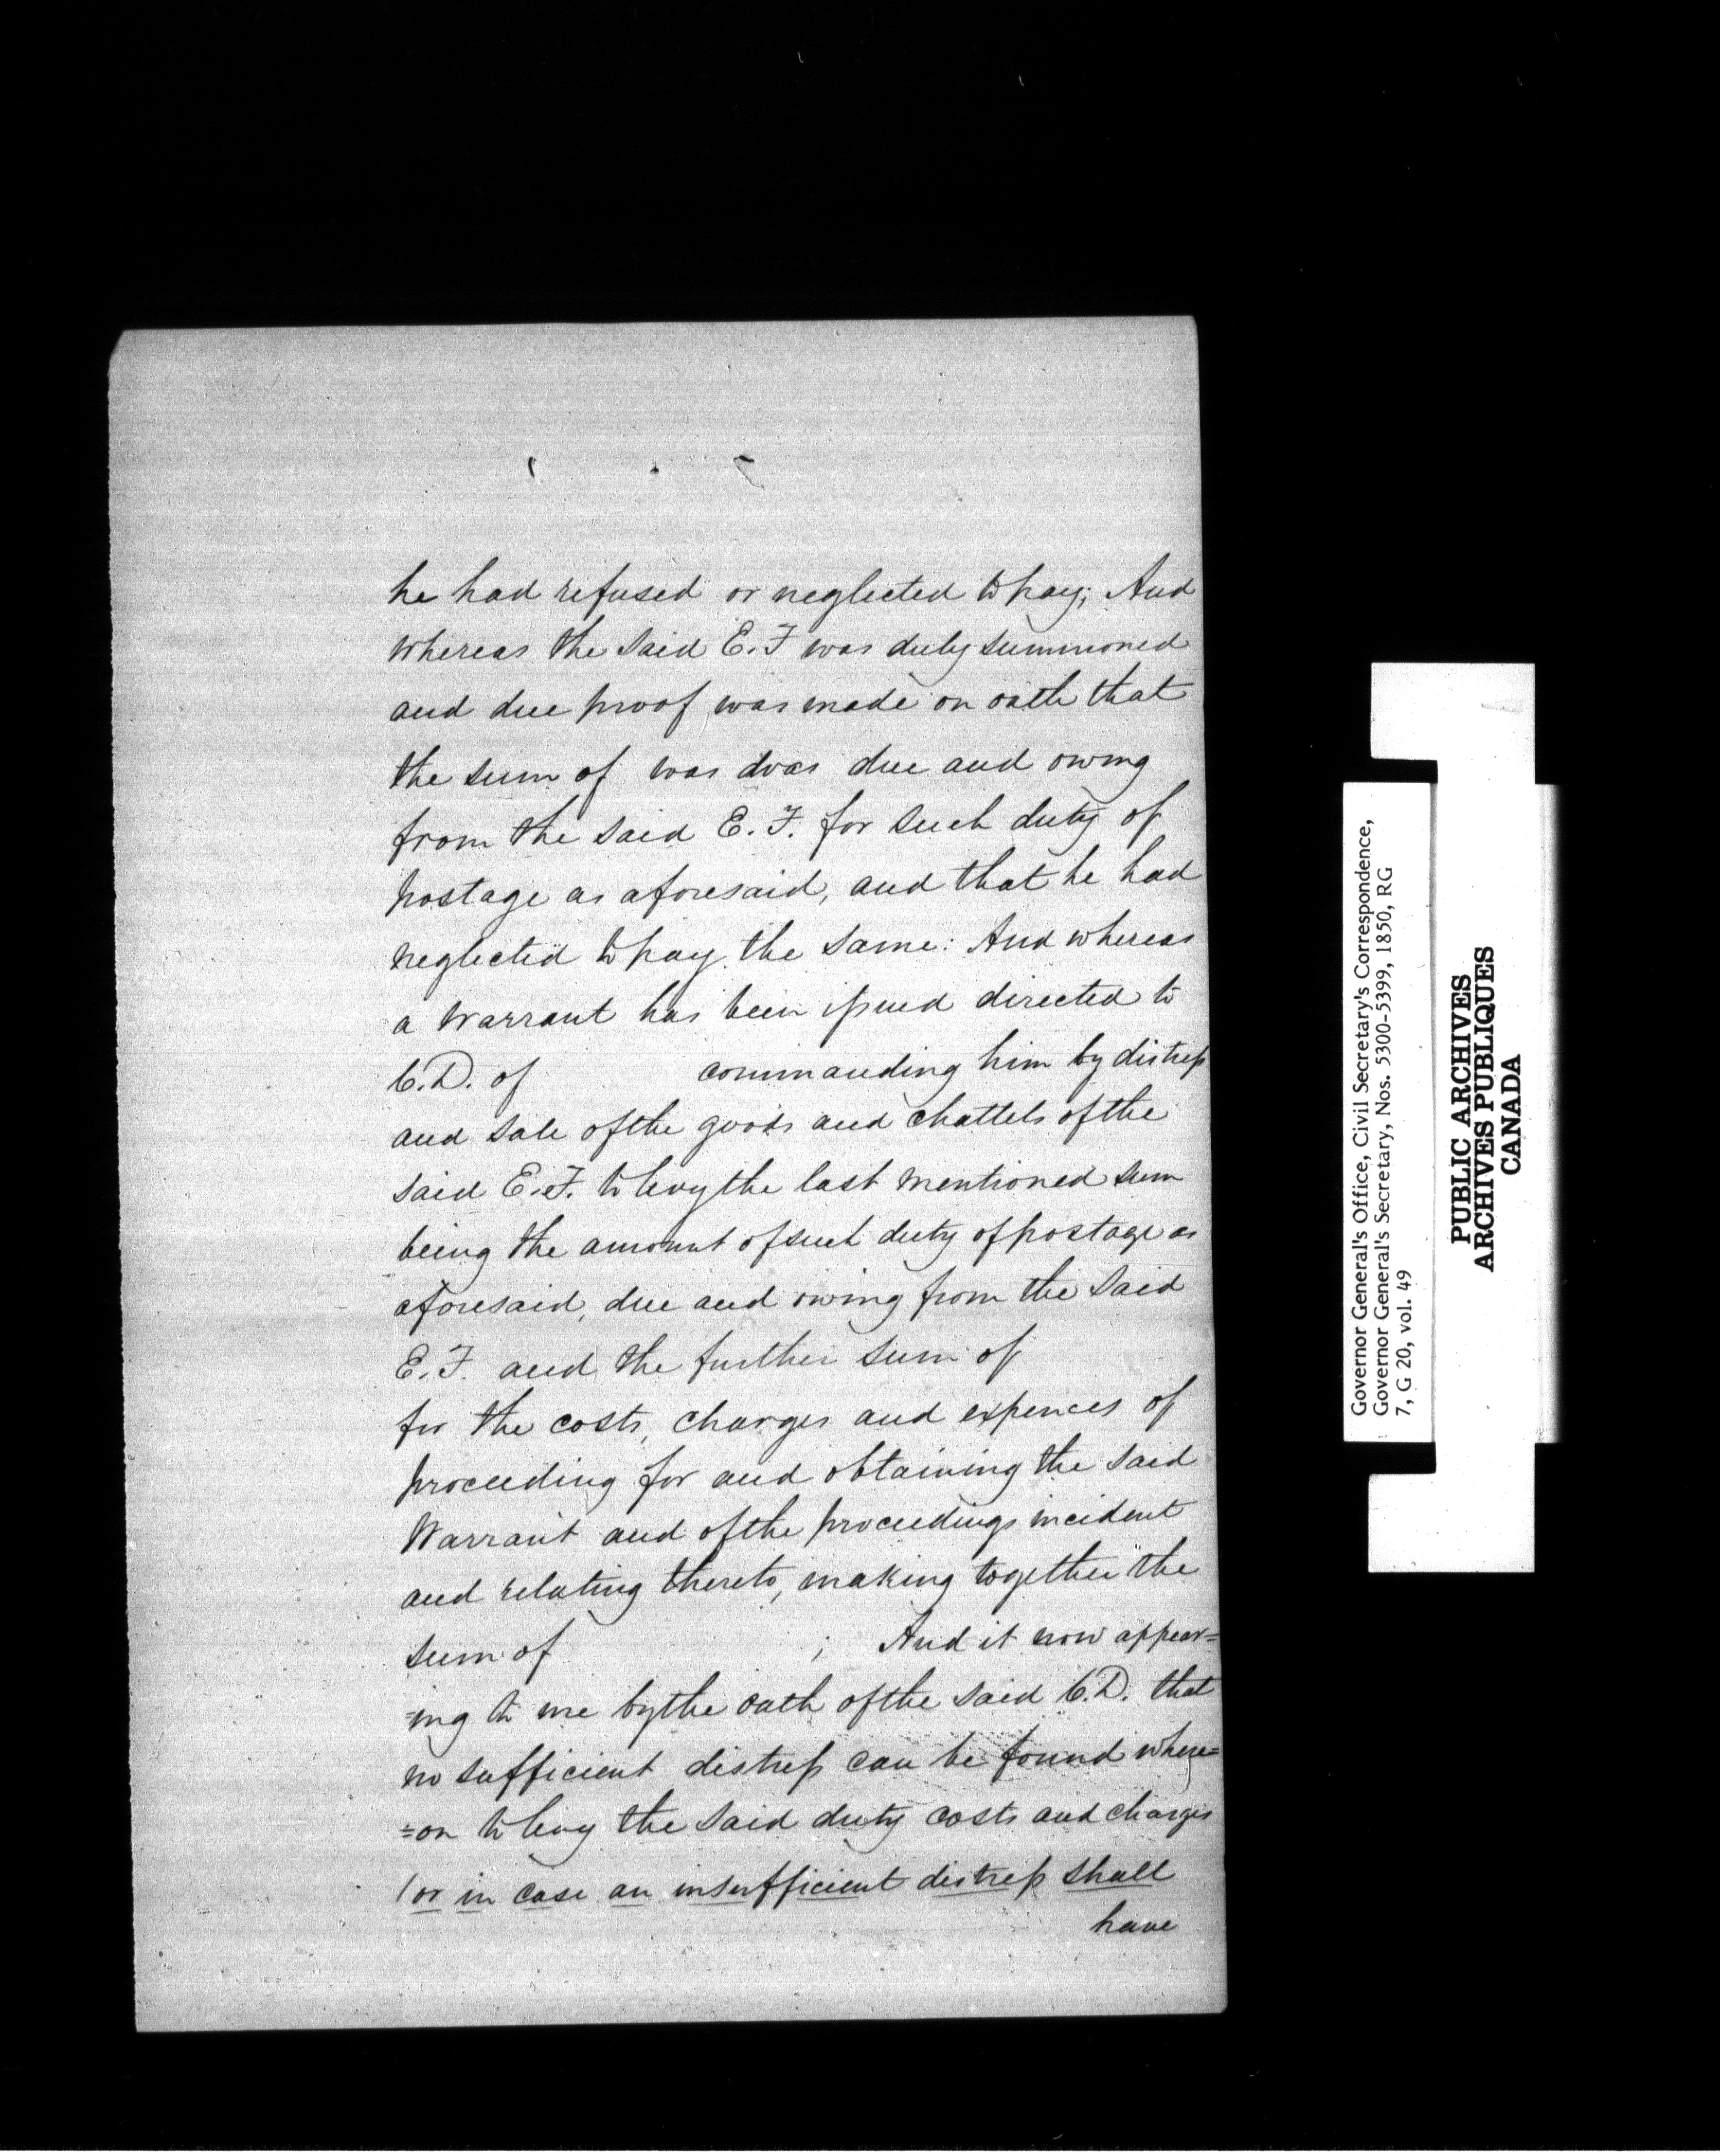 he had refused or neglected to pay; And
whereas the said E. F was duly summoned
and due proof was made on oath that
the sum of was was due and owing
from the said E. F. for such duty of
postage as aforesaid, and that he had
neglected to pay the same: And whereas
a Warrant has been issued directed to
C.D. of commanding him by distress
and sale of the goods and chattels of the
said E. F. to levy the last mentioned sum
being the amount of such duty of postage as
aforesaid, due and owing from the said
E. F. and the further sum of
for the costs, charges and expences of
proceeding for and obtaining the said
Warrant and of the proceedings incident
and relating thereto, making together the
sum of ; And it now appear=
=ing to me by the oath of the said C.D. that
no sufficient distress can be found where=
=on to levy the said duty costs and charges
(or in case an insufficient distress shall
have
Governor General's Office, Civil Secretary's Correspondence,
Governor General's Secretary, Nos. 5300-5399, 1850, RG
7, G 20, vol. 49
PUBLIC ARCHIVES
ARCHIVES PUBLIQUES
CANADA